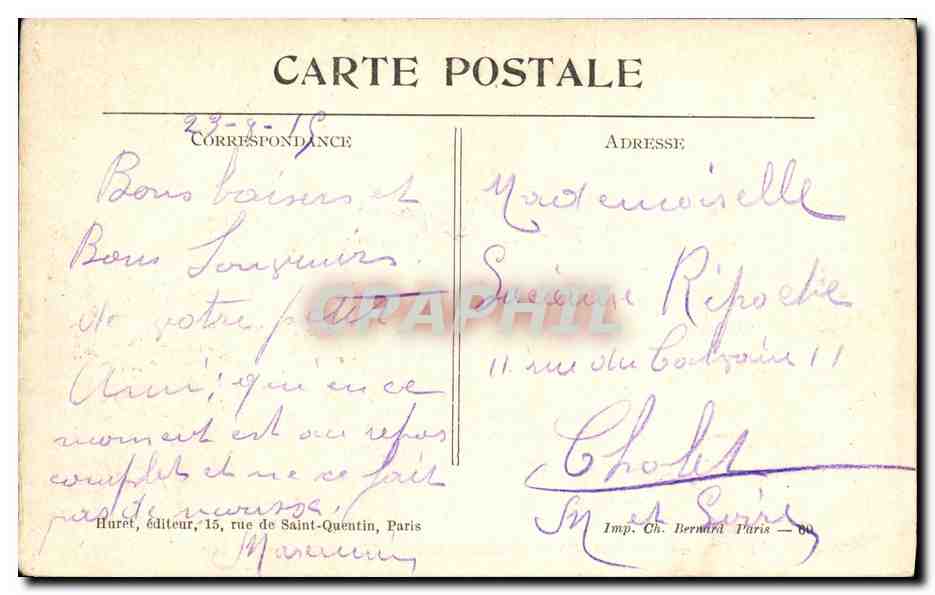 CARTE POSTALE
23-8-15
CORRESPONDANCE
Bons baisers et
Bons Souvenirs
de votre petit
Ami, qui en ce
moment est au repos
complet et ne ce fait
pas de
ADRESSE
Mademoiselle
Ripoche
11 rue du Calvaire 11
Cholet
M et Loire
Huret, éditeur, 15, rue de Saint-Quentin, Paris
Imp. Ch. Bernard Paris — 60
CPAPHIL